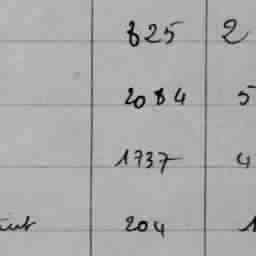 825 2
2084 5
1737 4
204 1